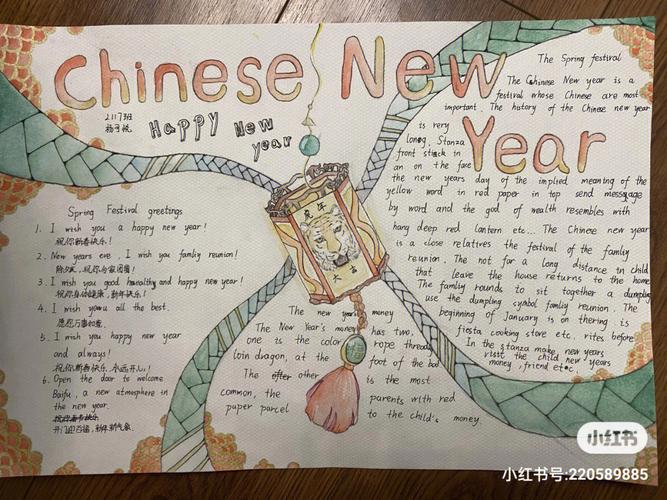 Chinese New
Year
2117班
Happy New
year
The Spring festival
The Chinese New year is a
festival whose Chinese are most
important. The history of the Chinese new year
is very
long. Stanza
front stick in
an on the fare
the new years day of the implied meaning of the
yellow word in red paper in top send message
by word and the god of wealth resembles with
hang deep red lantern etc... The Chinese new year
is a close relatives the festival of the family
reunion. The not far a long distance in child
that leave the house returns to the home
The family rounds to sit together a dumpling
use the dumpling symbol family reunion. The
beginning of January is on thering is
fiesta cooking store etc. rites before
In the stanza make new years
visit the child new years
money, friend etc.
Spring Festival greetings
1. I wish you a happy new year!
祝你新春快乐!
2. New years eve, I wish you family reunion!
除夕夜,祝你与家团圆!
3. I wish you good healthy and happy new year!
祝你身体健康,新年快乐!
4. I wish you all the best.
愿您万事如意.
5. I wish you happy new year
and always!
祝你新春快乐,永远开心!
6. Open the door to welcome
Baifu, a new atmosphere in
the new year.
开门迎百福,新年新气象
虎年
大吉
The new year money
The New Year's money has two,
one is the color rope thready
loin dragon, at the foot of the bod
The other is the most
common, the parents with red
puper parcel to the child's money.
小红书
小红书号:220589885